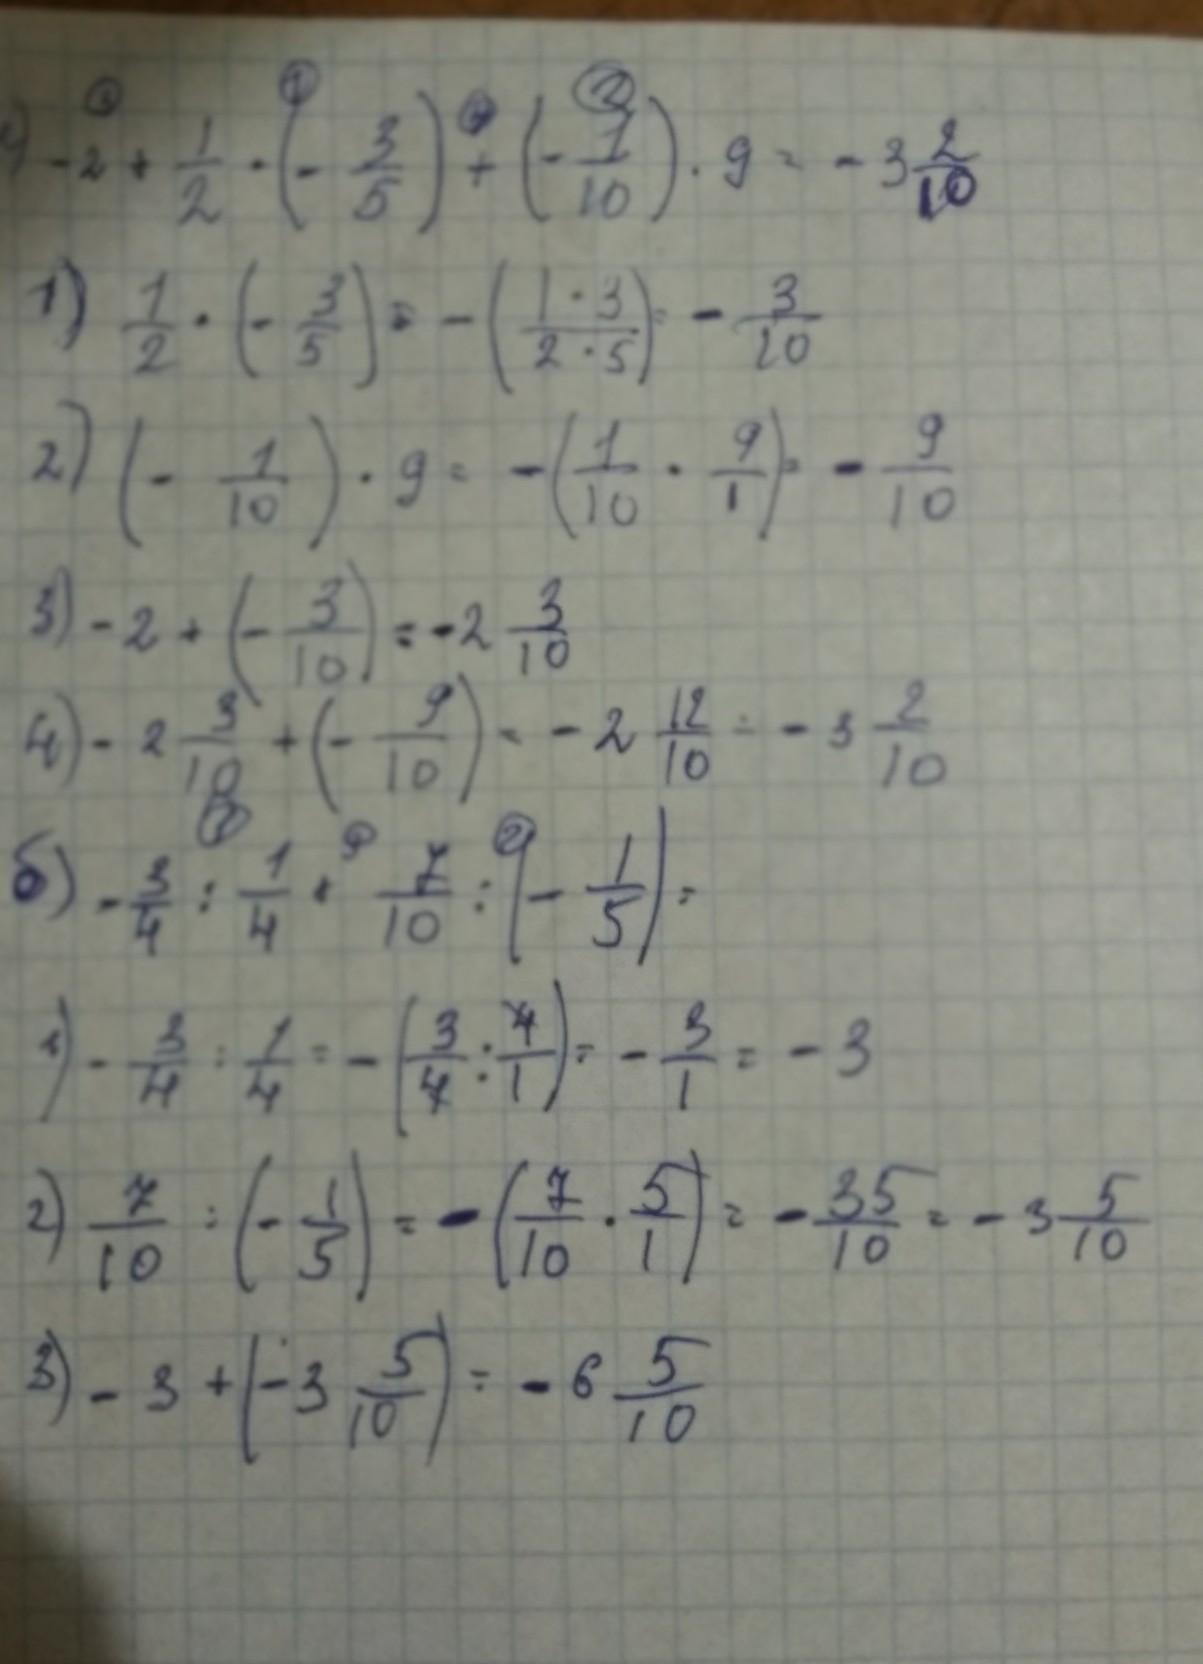 ③ ① ④ ②
-2 + 1/2 · (- 3/5) + (- 1/10) · 9 = - 3 2/10
1) 1/2 · (- 3/5) = - (1 · 3 / 2 · 5) = - 3/10
2) (- 1/10) · 9 = - (1/10 · 9/1) = - 9/10
3) - 2 + (- 3/10) = - 2 3/10
4) - 2 3/10 + (- 9/10) = - 2 12/10 = - 3 2/10
① ③ ②
б) - 3/4 : 1/4 + 7/10 : (- 1/5) =
1) - 3/4 : 1/4 = - (3/4 : 4/1) = - 3/1 = - 3
2) 7/10 : (- 1/5) = - (7/10 · 5/1) = - 35/10 = - 3 5/10
3) - 3 + (- 3 5/10) = - 6 5/10